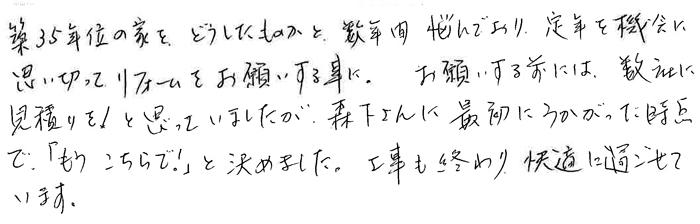 築35年位の家を、どうしたものかと、数年間 悩んでおり、定年を機会に
思い切って リフォームを お願いする事に。 お願いする前には、数社に
見積りを！と思っていましたが、森下さんに 最初にうかがった時点
で、「もう こちらで！」と決めました。 工事も終わり 快適に過ごせて
います。